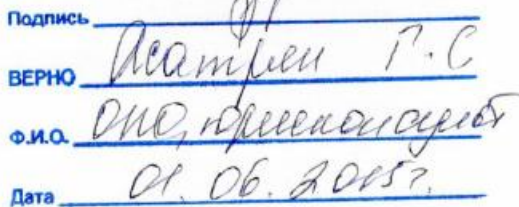 Подпись
ВЕРНО Асатрян Г.С
Ф.И.О. ОНО, юрисконсульт
Дата 01.06.2015г.